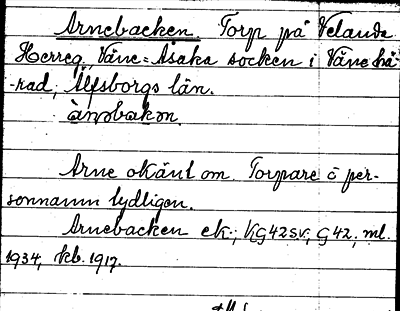 Arnebacken. Torp på Velanda
Herreg., Väne=Åsaka socken i Väne hä-
-rad, Älfsborgs län.
àn̩obakɔn.
Arne okänt om Torpare ċ per-
sonnamn tydligen.
Arnebacken ek.; KG42sv.; G42, ml.
1934, kb. 1917.